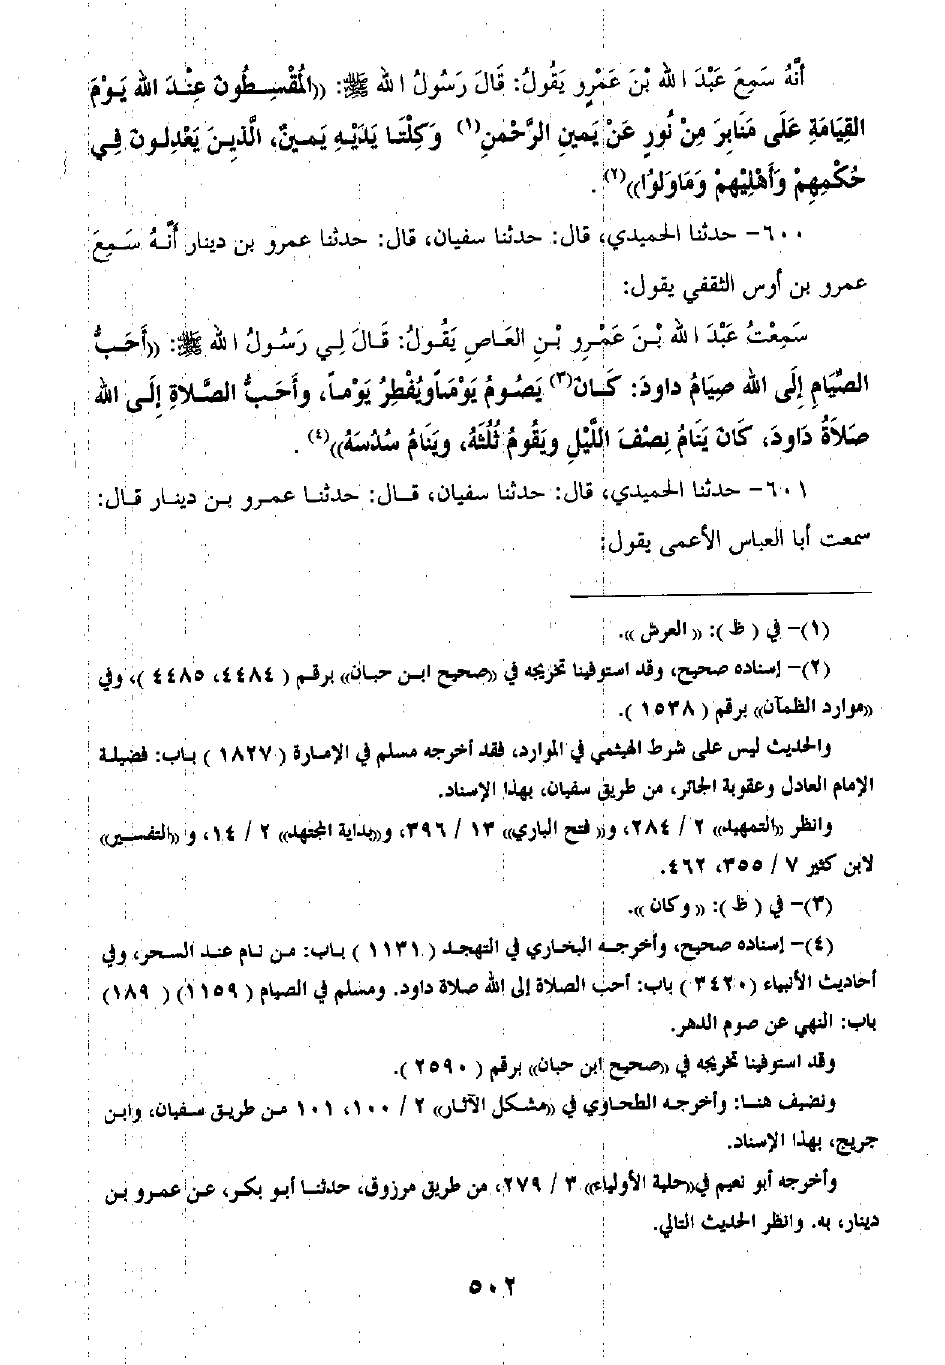 أَنَّهُ سَمِعَ عَبْدَ اللهِ بْنَ عَمْرٍو يَقُولُ: قَالَ رَسُولُ اللهِ ﷺ: «الْمُقْسِطُونَ عِنْدَ اللهِ يَوْمَ
القِيَامَةِ عَلَى مَنَابِرَ مِنْ نُورٍ عَنْ يَمينِ الرَّحْمنِ(١) وَكِلْتَا يَدَيْهِ يَمينٌ، الَّذينَ يَعْدِلونَ فِي
حُكْمِهِمْ وَأَهْلِيْهِمْ وَمَاوَلُوْا»(٢).
٦٠٠- حدثنا الحميدي، قال: حدثنا سفيان، قال: حدثنا عمرو بن دينار أَنَّهُ سَمِعَ
عمرو بن أوس الثقفي يقول:
سَمِعْتُ عَبْدَ اللهِ بْنَ عَمْرِو بْنِ العَاصِ يَقُولُ: قَالَ لِي رَسُولُ اللهِ ﷺ: «أَحَبُّ
الصِّيَامِ إِلَى اللهِ صِيَامُ داودَ: كَانَ(٣) يَصُومُ يَوْمَاًويُفْطِرُ يَوْماً، وأَحَبُّ الصَّلاةِ إِلَى اللهِ
صَلاَةُ دَاودَ، كَانَ يَنَامُ نِصْفَ اللَّيْلِ ويَقُومُ ثُلُثَهُ، ويَنَامُ سُدُسَهُ»(٤).
٦٠١- حدثنا الحميدي، قال: حدثنا سفيان، قال: حدثنا عمرو بن دينار قال:
سمعت أبا العباس الأعمى يقول:
(١)- في ( ظ ): « العرش ».
(٢)- إسناده صحيح، وقد استوفينا تخريجه في «صحيح ابن حبان» برقم ( ٤٤٨٤، ٤٤٨٥ )، وفي
«موارد الظمآن» برقم ( ١٥٣٨ ).
والحديث ليس على شرط الهيثمي في الموارد، فقد أخرجه مسلم في الإمارة ( ١٨٢٧ ) باب: فضيلة
الإمام العادل وعقوبة الجائر، من طريق سفيان، بهذا الإسناد.
وانظر «التمهيد» ٢ / ٢٨٤، و« فتح الباري» ١٣ / ٣٩٦، و«بداية المجتهد» ٢ / ١٤، و «التفسير»
لابن كثير ٧ / ٣٥٥، ٤٦٢.
(٣)- في ( ظ ): « وكان ».
(٤)- إسناده صحيح، وأخرجه البخاري في التهجد ( ١١٣١ ) باب: من نام عند السحر، وفي
أحاديث الأنبياء ( ٣٤٢٠ ) باب: أحب الصلاة إلى الله صلاة داود. ومسلم في الصيام ( ١١٥٩ ) ( ١٨٩ )
باب: النهي عن صوم الدهر.
وقد استوفينا تخريجه في «صحيح ابن حبان» برقم ( ٢٥٩٠ ).
ونضيف هنا: وأخرجه الطحاوي في «مشكل الآثار» ٢ / ١٠٠، ١٠١ من طريق سفيان، وابن
جريج، بهذا الإسناد.
وأخرجه أبو نعيم في«حلية الأولياء» ٣ / ٢٧٩، من طريق مرزوق، حدثنا أبو بكر، عن عمرو بن
دينار، به. وانظر الحديث التالي.
٥٠٢